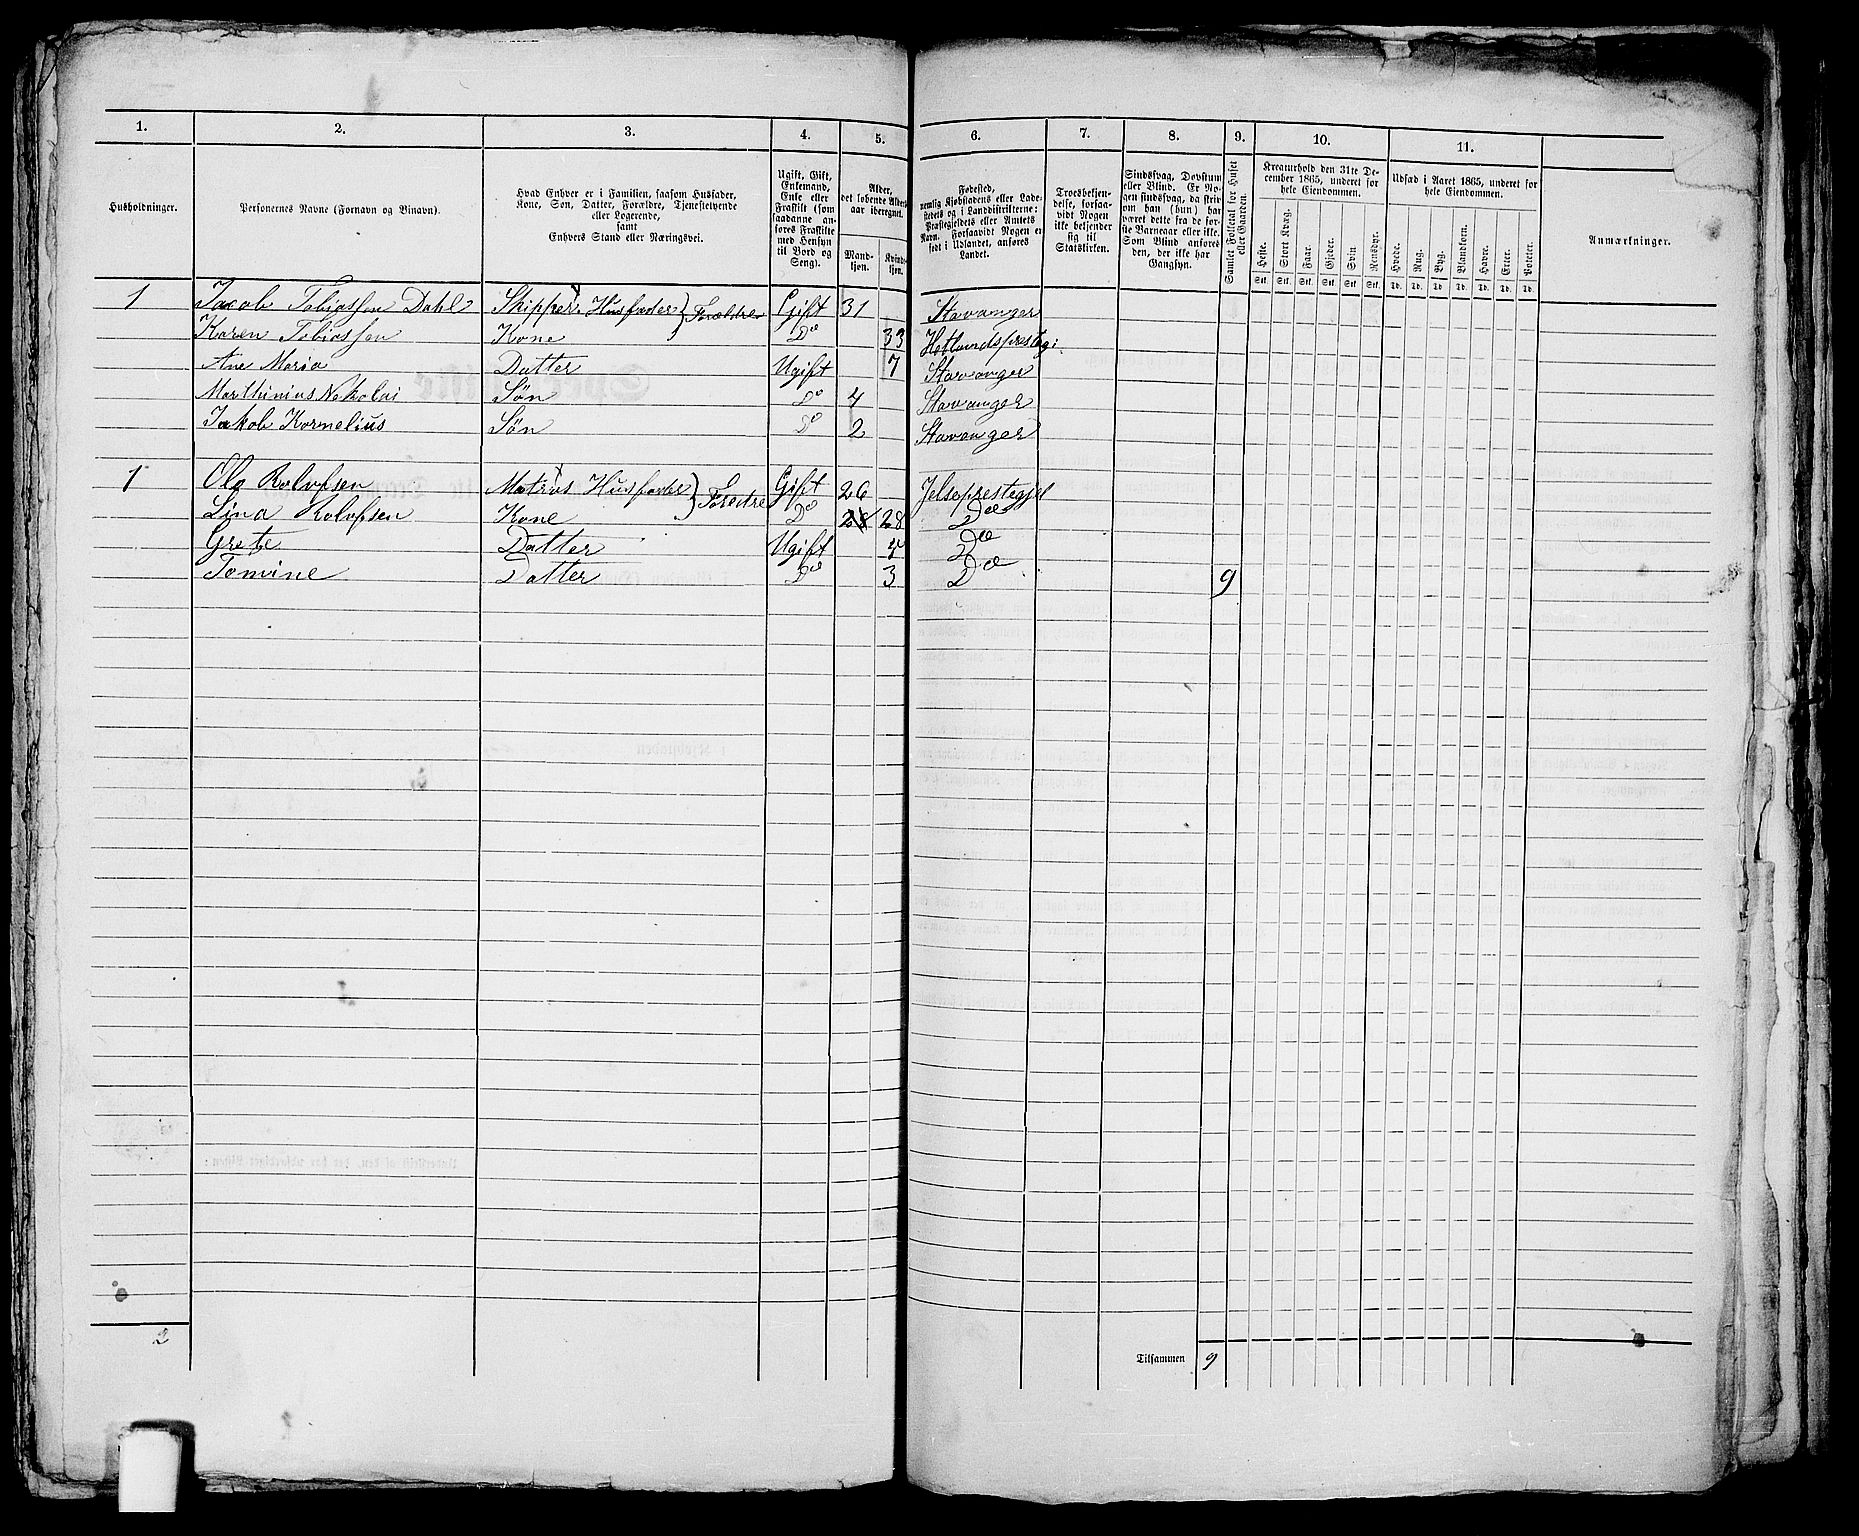 1. 2. 3. 4. 5. 6. 7. 8. 9. 10. 11.
Husholdninger.
Personernes Navne (Fornavn og Binavn).
Hvad Enhver er i Familien, saasom Husfader,
Kone, Søn, Datter, Forældre, Tjenestetyende
eller Logerende,
samt
Enhvers Stand eller Næringsvei.
Ugift, Gift,
Enkemand,
Enke eller
Fraskilt (som
saadanne an-
føres Fraskilte
med Hensyn
til Bord og
Seng).
Alder,
det løbende Alders-
aar iberegnet.
Mand-
kjøn.
Kvind-
kjøn.
Fødested,
nemlig Kjøbstadens eller Lade-
stedets og i Landdistrikterne:
Præstegjeldets eller Amtets
Navn. Forsaavidt Nogen er
født i Udlandet, anføres
Landet.
Troesbekjen-
delse, forsaa-
vidt Nogen
ikke bekjender
sig til
Statskirken.
Sindssvag, Døvstum
eller Blind. Er No-
gen sindssvag, da skriv
om han (hun) har
været dette fra de før-
ste Barneaar eller ikke.
Som Blind anføres
den, der ikke har
Gangsyn.
Samlet Folketal for Huset
eller Gaarden.
Kreaturhold den 31te De-
cember 1865, underet for
hele Eiendommen.
Heste. Stort Kvæg. Faar. Gjeder. Svin Rensdyr.
Stk. Stk. Stk. Stk. Stk. Stk.
Udsæd i Aaret 1865, underet for
hele Eiendommen.
Hvede. Rug. Byg. Blandkorn. Havre. Erter. Poteter.
Td. Td. Td. Td. Td. Td. Td.
Anmærkninger.
1 Jacob Tobiassen Dahl Skipper. Husfader } Forældre Gift 31 Stavanger
Karen Tobiassen Kone Do 33 Hetlandsprestegj
Ane Maria Datter Ugift 7 Stavanger
Marthinius Nekolai Søn Do 4 Stavanger
Jakob Kornelius Søn Do 2 Stavanger
1 Ola Rolvfsen Matros Husfader } Foredre Gift 26 Jelseprestegjel
Lina Rolvfsen Kone Do 28 28 Do
Grete Datter Ugift Do
Tomine Datter Do 3 Do 9
2
Tilsammen 9